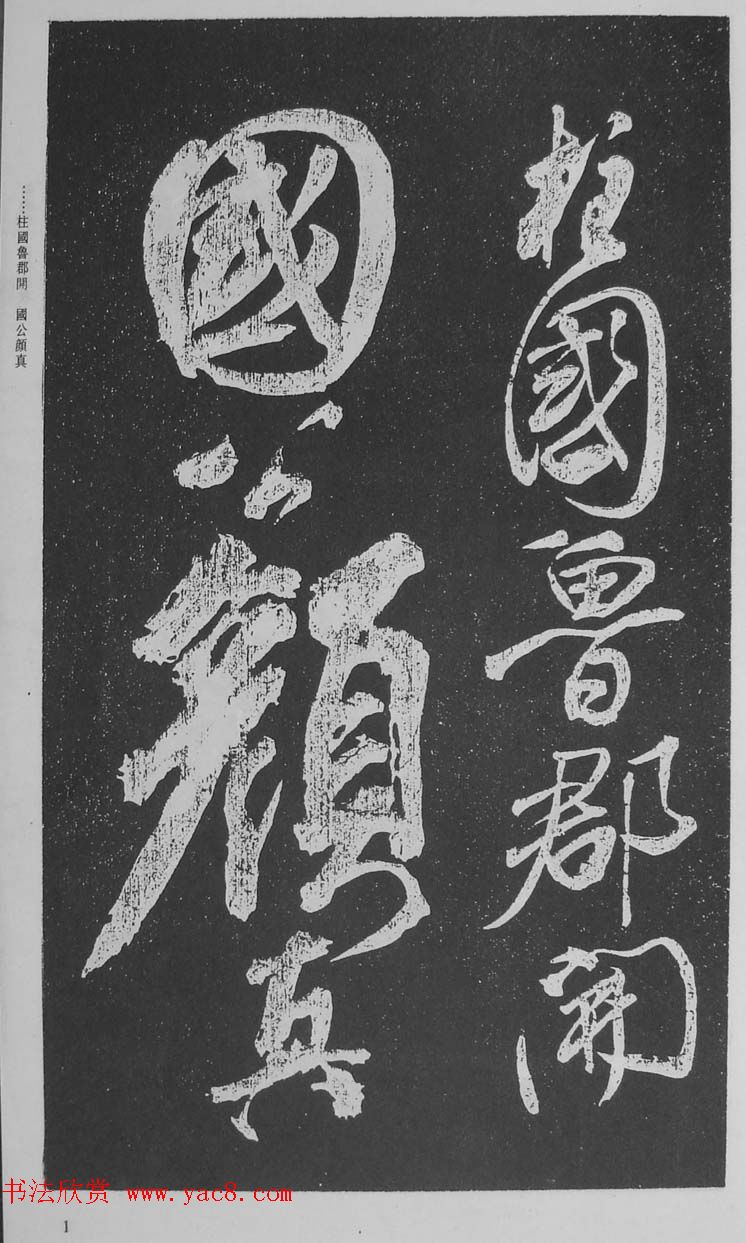 柱國魯郡開
國公顏真
……柱國魯郡開　國公顏真
书法欣赏 www.yac8.com
1